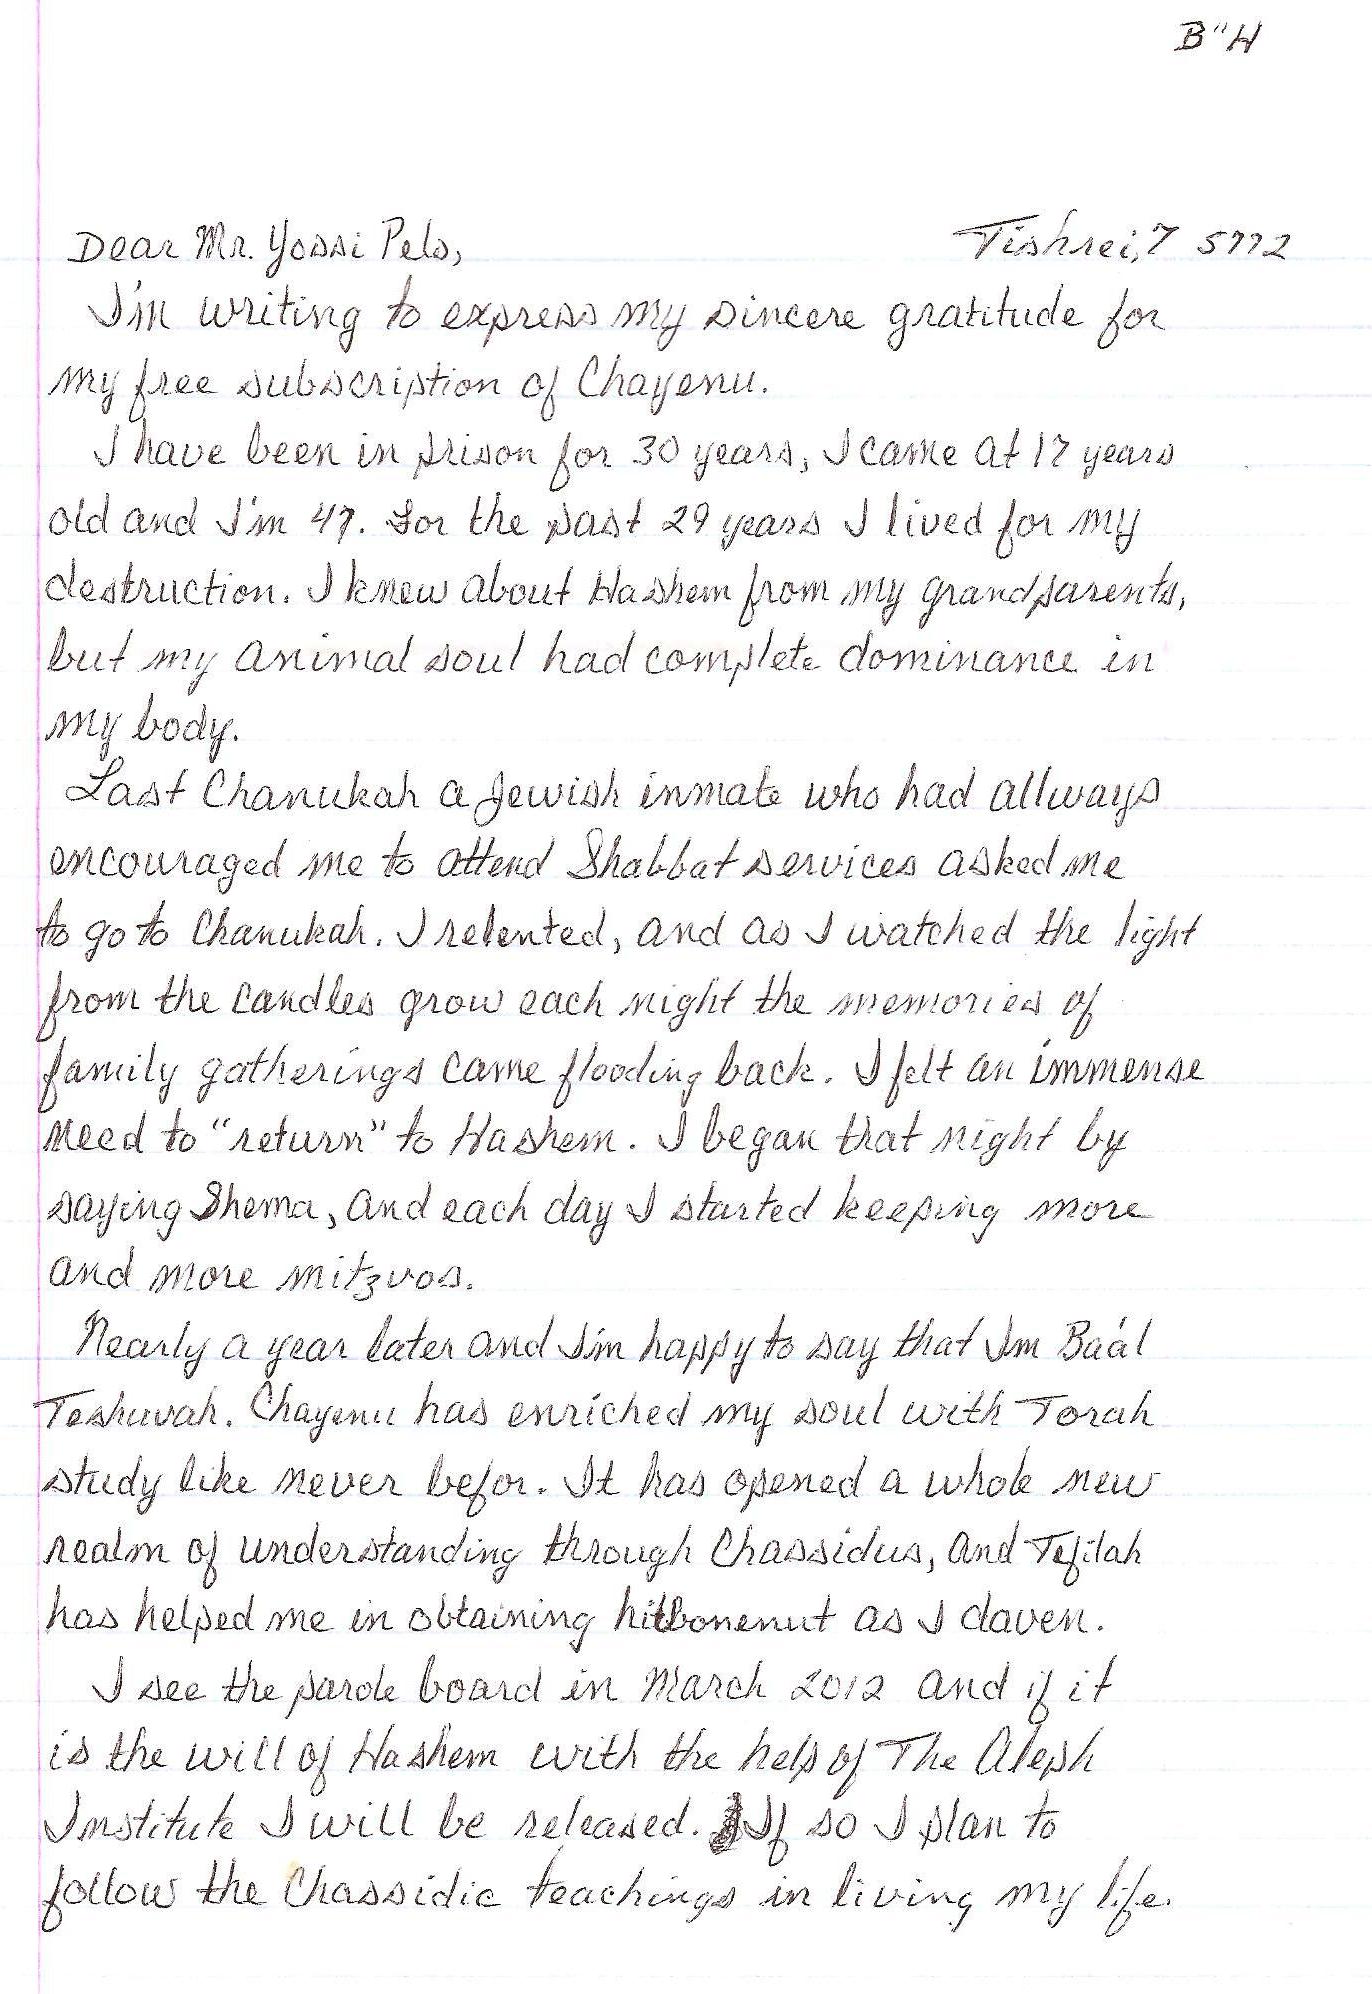 B"H
Dear Mr. Yossi Pels, Tishrei, 7 5772
I'm writing to express my sincere gratitude for
my free subscription of Chayenu.
I have been in prison for 30 years, I came at 17 years
old and I'm 47. For the past 29 years I lived for my
destruction. I knew about Hashem from my grandparents,
but my animal soul had complete dominance in
my body.
Last Chanukah a Jewish inmate who had allways
encouraged me to attend Shabbat services asked me
to go to Chanukah. I relented, and as I watched the light
from the candles grow each night the memories of
family gatherings came flooding back. I felt an immense
need to "return" to Hashem. I began that night by
saying Shema, and each day I started keeping more
and more mitzvos.
Nearly a year later and I'm happy to say that I'm Ba'al
Teshuvah. Chayenu has enriched my soul with Torah
study like never befor. It has opened a whole new
realm of understanding through Chassidus, and Tefilah
has helped me in obtaining hitbonenut as I daven.
I see the parole board in March 2012 and if it
is the will of Hashem with the help of The Aleph
Institute I will be released. If so I plan to
follow the Chassidic teachings in living my life.